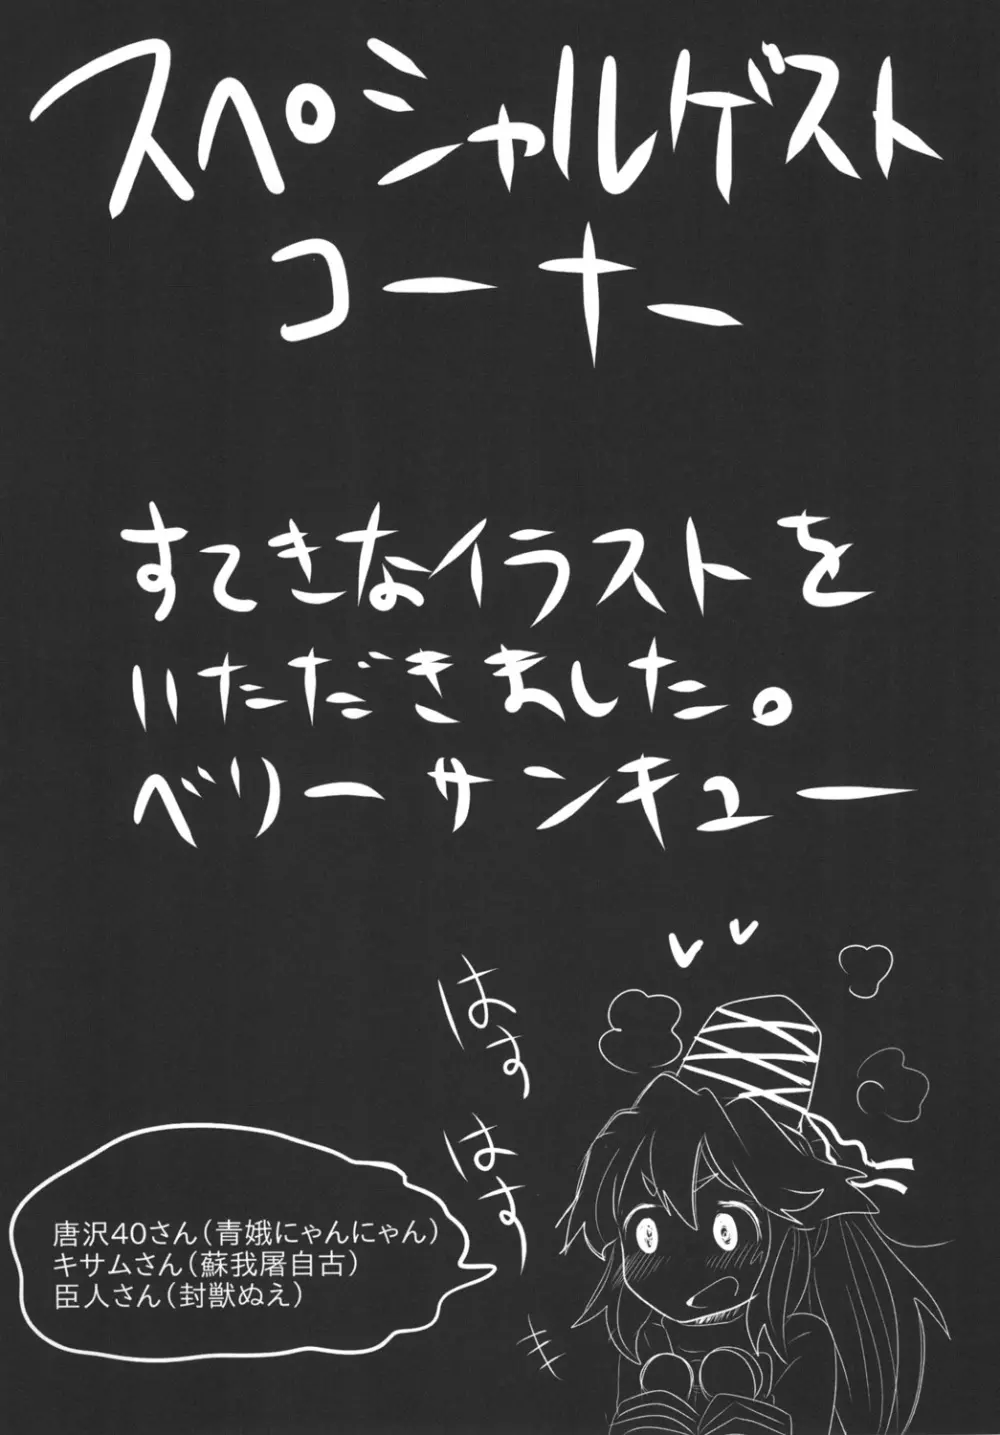 スペシャルゲスト
コーナー
すてきなイラストを
いただきました。
ベリーサンキュー
はす
はす
唐沢40さん(青娥にゃんにゃん)
キサムさん(蘇我屠自古)
臣人さん(封獣ぬえ)